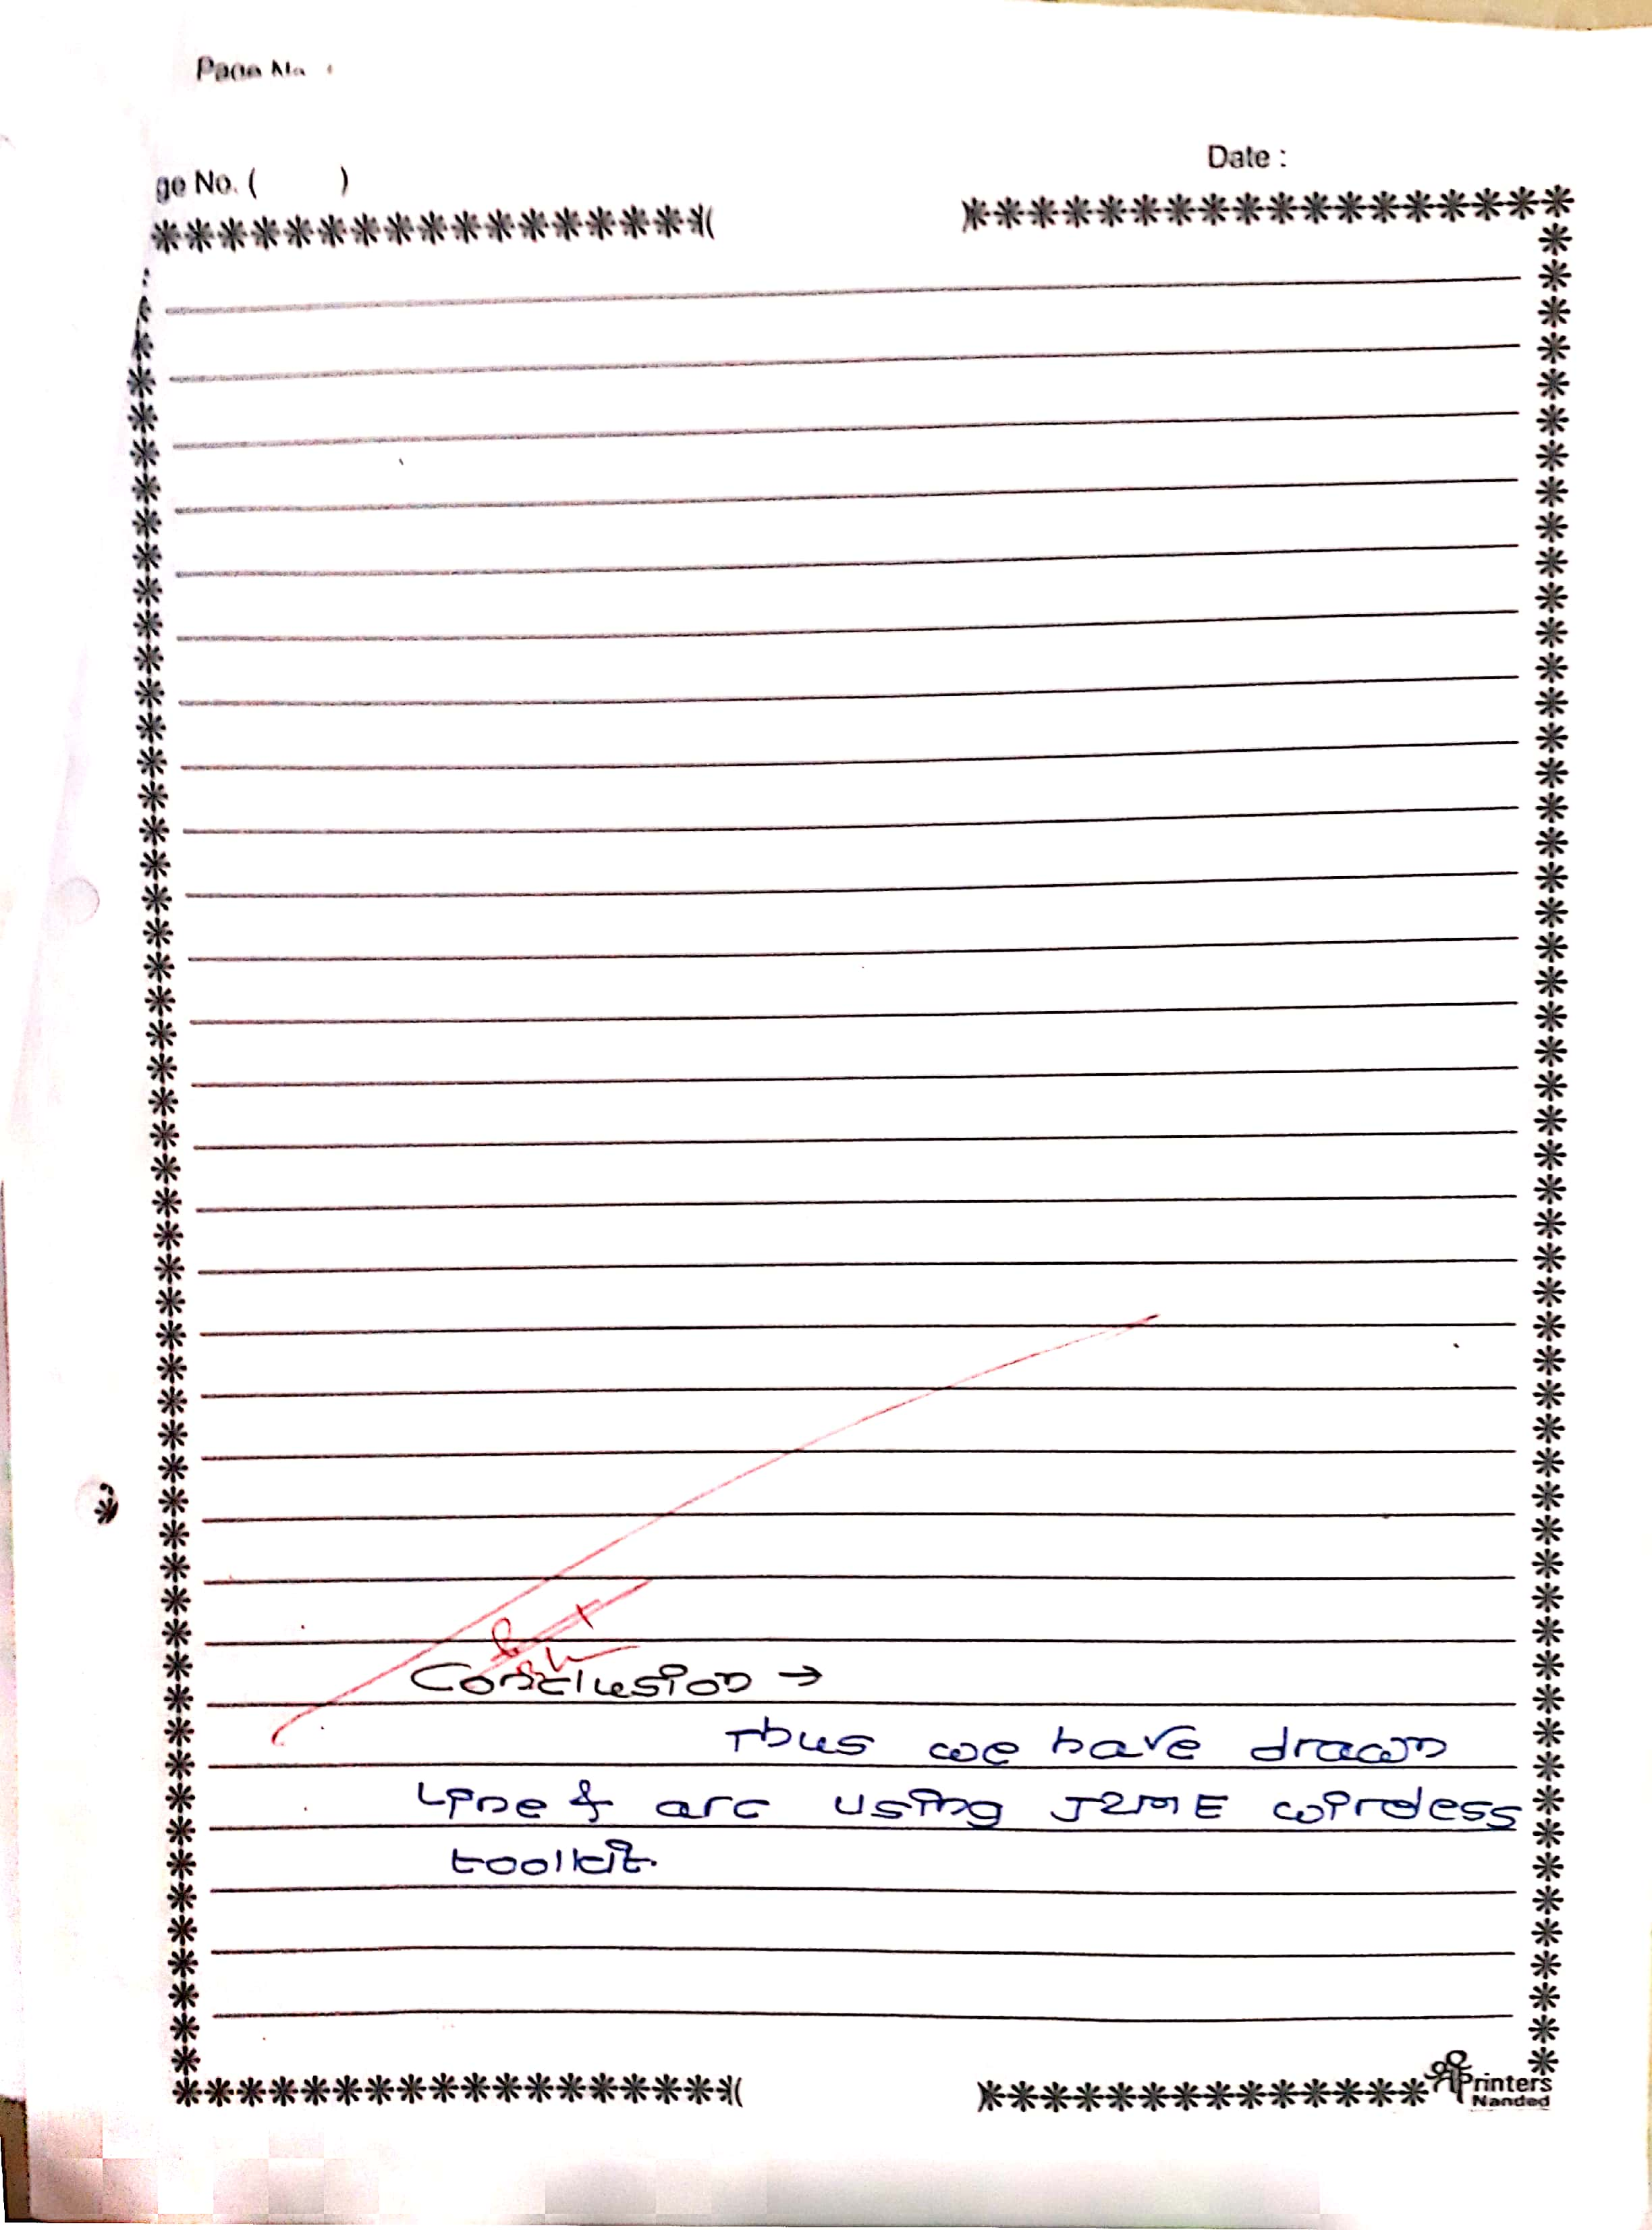 Page No.
ge No. ( )
Date :
Conclusion →
Thus we have drawn
Line & arc using J2ME wireless
toolkit.
Printers
Nanded